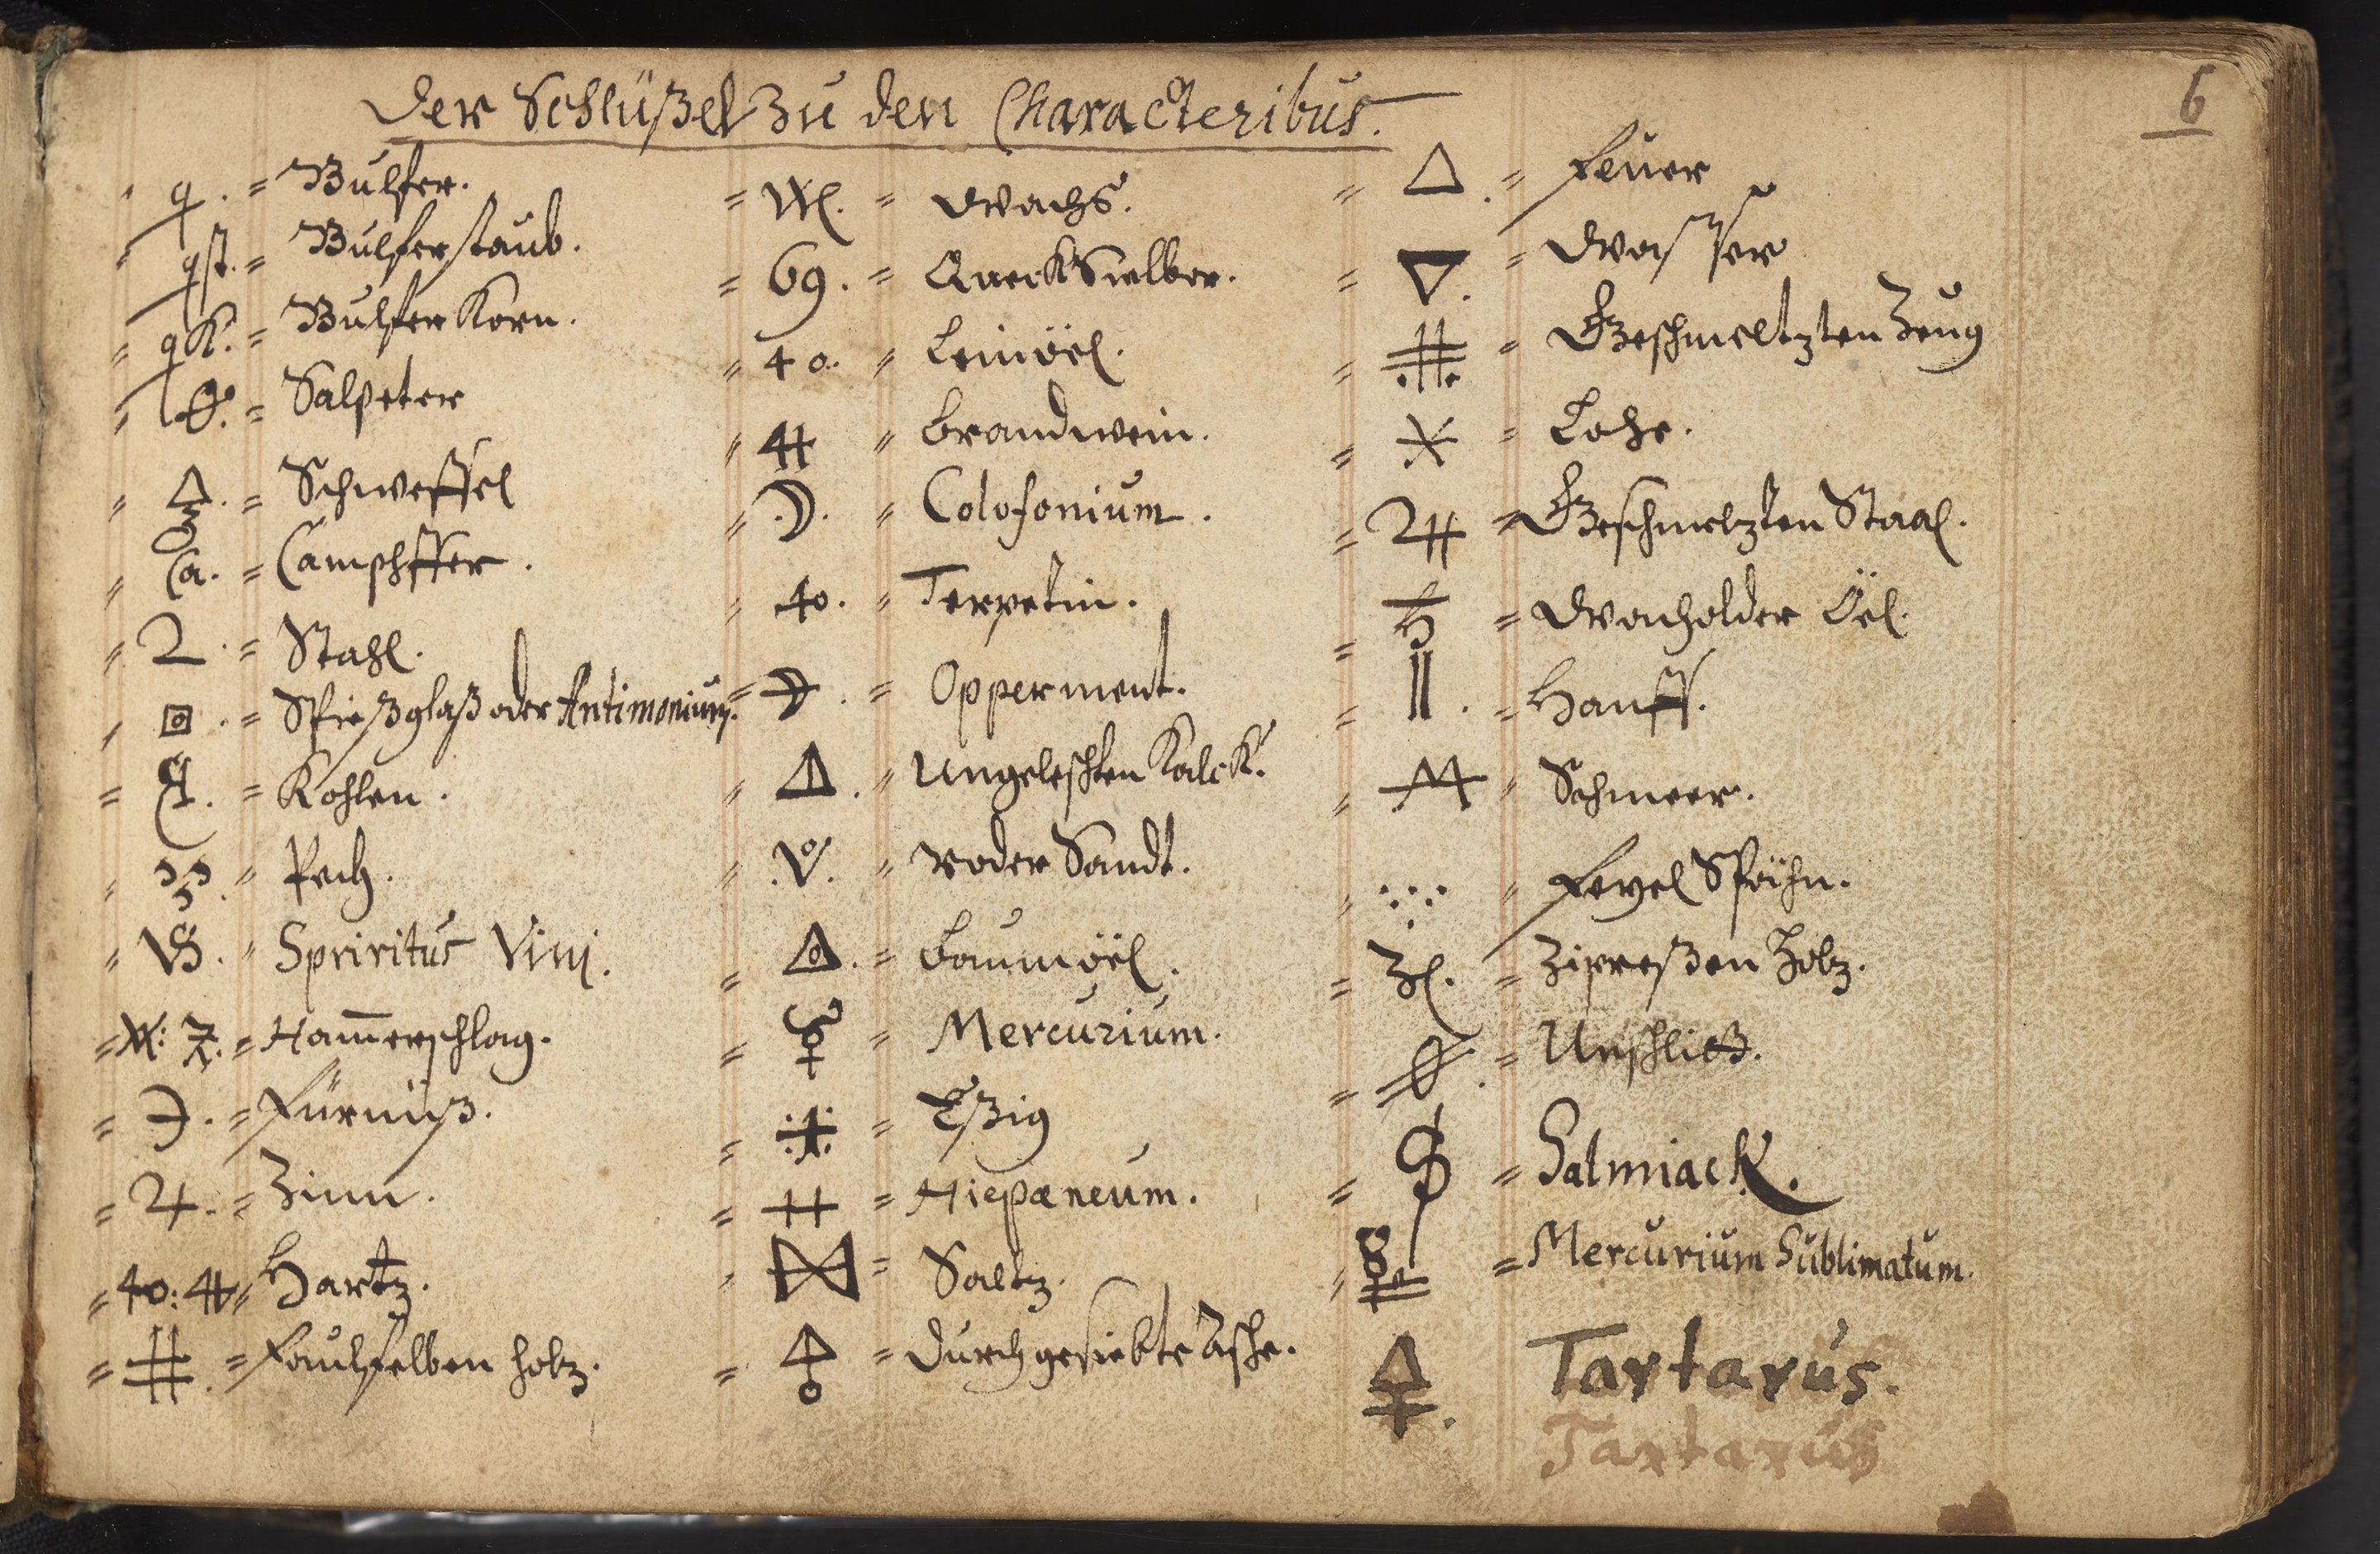 6
Der Schlüßel Zu den Characteribus.
q. = Bulfer.
qst. = Bulferstaub.
qK. = Bulfer Korn.
= Salpeter
= Schweffel
Ca. = Camphffer.
2. = Stahl.
= Spießglaß oder Antimonium.
= Kohlen.
= Pech.
VS. = Spriritus Vini.
= Ham̅erschlag.
= Fürniß.
♃. = Zinn.
= Hartz.
= Faulfelben holtz.
Wl. = Wachs.
69. = Queck Sielber.
40. = Leinöel.
= Brandwein.
☽. = Colofonium.
40. = Terpetin.
= Opperment.
= Ungeleschten Kalck.
= Roder Sandt.
= Baumöel.
= Mercurium.
= Eßig
= Hiepæneum.
= Saltz.
= Durch gesiebte Asche.
△. = Feuer
▽. = Wasser
= Geschmeltzten Zeug
= Lohe.
= Geschmeltzten Staal.
= Wacholder Öel.
= Hanff.
= Schmeer.
= Feyel Spöhn.
Zl. = Zipreßen Holtz.
= Unschliet.
= Salmiack.
= Mercurium Sublimatum.
Tartarus.
Tartarus